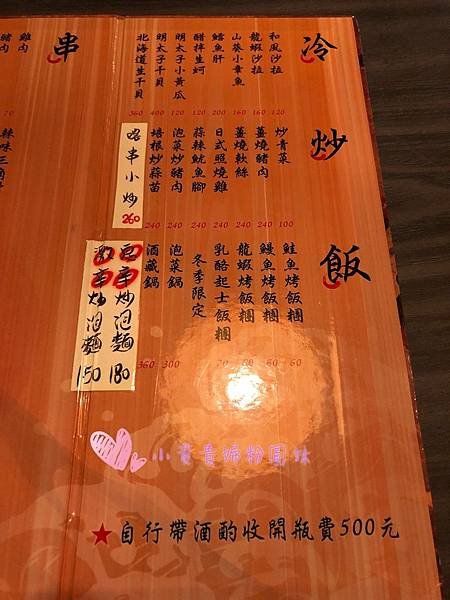 冷
和風沙拉 120
龍蝦沙拉 160
山葵小章魚 160
鱈魚肝 200
醋拌生蚵 120
明太子小黃瓜 120
明太子干貝 400
北海道生干貝 360
炒
炒青菜 100
薑燒豬肉 240
薑燒軟絲 240
日式照燒雞 240
蒜辣魷魚腳 240
泡菜炒豬肉 240
培根炒蒜苗 240
串小炒 260
飯
鮭魚烤飯糰 60
鰻魚烤飯糰 60
龍蝦烤飯糰 60
乳酪起士飯糰 70
冬季限定
泡菜鍋 300
酒藏鍋 360
炒泡麵 180
炒泡麵 150
串
雞肉
豬肉
70
辣味三角骨
★自行帶酒酌收開瓶費500元